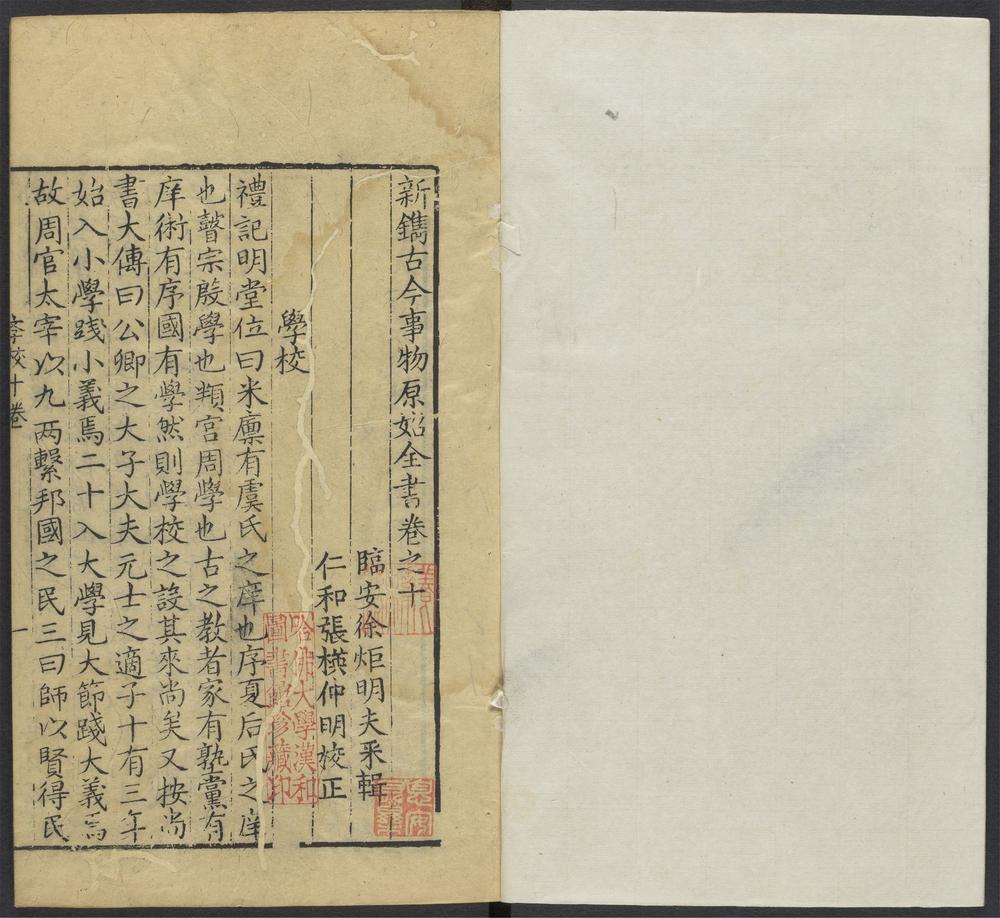 新鐫古今事物原始全書卷之十
臨安徐炬明夫采輯
仁和張楧仲明挍正
學校
禮記明堂位曰米廩有虞氏之庠也序夏后氏之庠
也瞽宗殷學也頖宫周學也古之教者家有塾黨有
庠術有序國有學然則學校之設其來尚矣又按尚
書大傳曰公卿之大子大夫元士之適子十有三年
始入小學踐小義焉二十入大學見大節踐大義焉
故周官太宰以九两繫邦國之民三曰師以賢得民
學校十卷
一
哈佛大學漢和
圖書館珍藏印